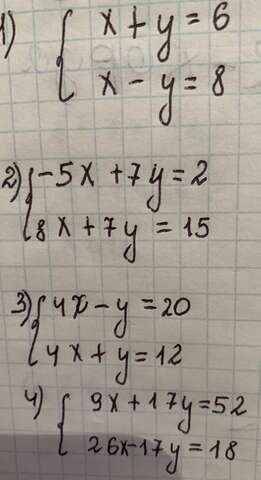 1) { x + y = 6
x - y = 8
2) { -5x + 7y = 2
8x + 7y = 15
3) { 4x - y = 20
4x + y = 12
4) { 9x + 17y = 52
26x - 17y = 18